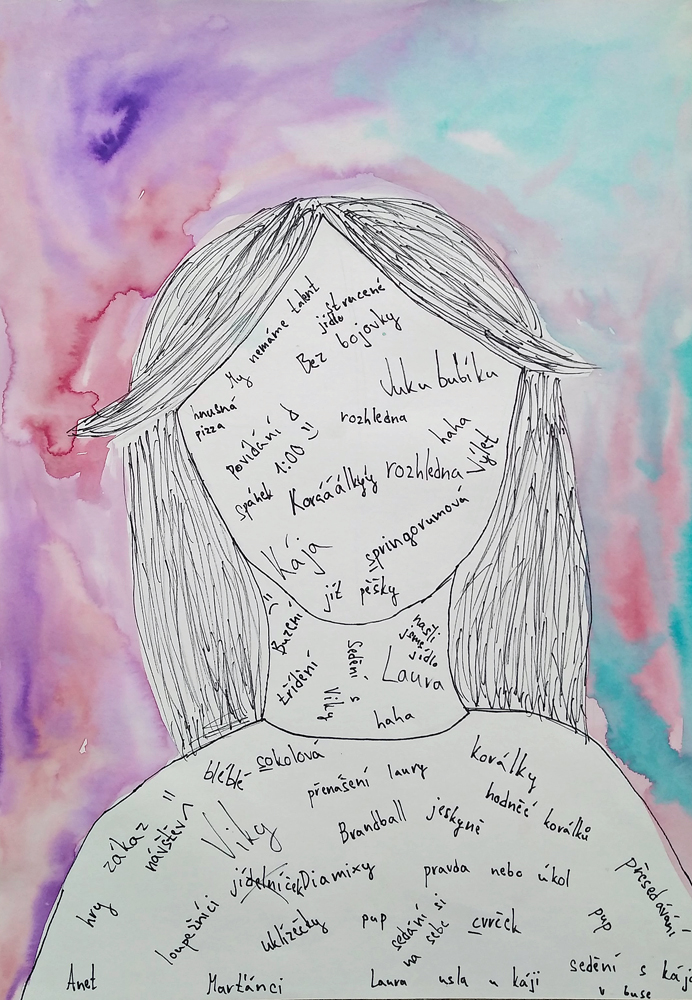 My nemáme talent
ztracené
jídlo
Bez bojovky
Juku bubiku
hnusná
pizza
rozhledna
haha
Výlet
povídání
spánek 1:00
Korááálkyý
rozhledna
springorumová
Kája
jít pěšky
Buzení
třídění
Sedění
s
Viky
našli
jsme
jídlo
Laura
haha
bléblé
sokolová
přenášení laury
korálky
hodněě korálků
zákaz
návštěv
Viky
Brandball
jeskyně
jídelníček
Diamixy
pravda nebo úkol
přesedávání
hry
loupežníci
uklízečky
pup
sedání si
na sebe
cvrček
pup
Anet
Marťánci
Laura usla u káji
sedění s káj
v buse